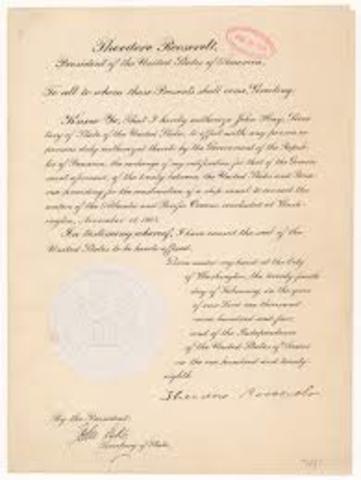 Theodore Roosevelt,
President of the United States of America,
To all to whom these Presents shall come, Greeting:
Know Ye, That I hereby authorize John Hay, Secre-
tary of State of the United States, to effect with any person or
persons duly authorized thereto by the Government of the Repub-
lic of Panama, the exchange of my ratification for that of the Govern-
ment aforesaid, of the treaty between the United States and Pana-
ma providing for the construction of a ship canal to connect the
waters of the Atlantic and Pacific Oceans concluded at Wash-
ington, November 18, 1903.
In testimony whereof, I have caused the seal of the
United States to be hereto affixed.
Given under my hand at the City
of Washington, the twenty fourth
day of February, in the year
of our Lord one thousand
nine hundred and four,
and of the Independence
of the United States of America
the one hundred and twenty-
eighth.
Theodore Roosevelt
By the President:
John Hay
Secretary of State.